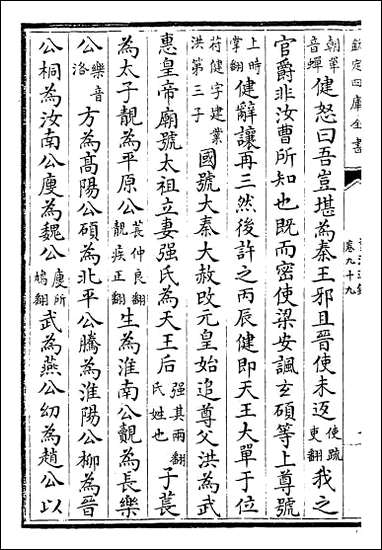 欽定四庫全書
卷九十九
朝單音蟬健怒曰吾豈堪為秦王邪且晉使未返使疏吏翻我之
官爵非汝曹所知也既而密使梁安諷玄碩等上尊號
上時掌翻健辭讓再三然後許之丙辰健即天王大單于位
符健字建業洪第三子國號大秦大赦改元皇始追尊父洪為武
惠皇帝廟號太祖立妻强氏為天王后强其兩翻氏姓也子萇
為太子靚為平原公萇仲良翻靚疾正翻生為淮南公覿為長樂
公樂音洛方為高陽公碩為北平公騰為淮陽公柳為晉
公桐為汝南公廋為魏公廋所鳩翻武為燕公幼為趙公以